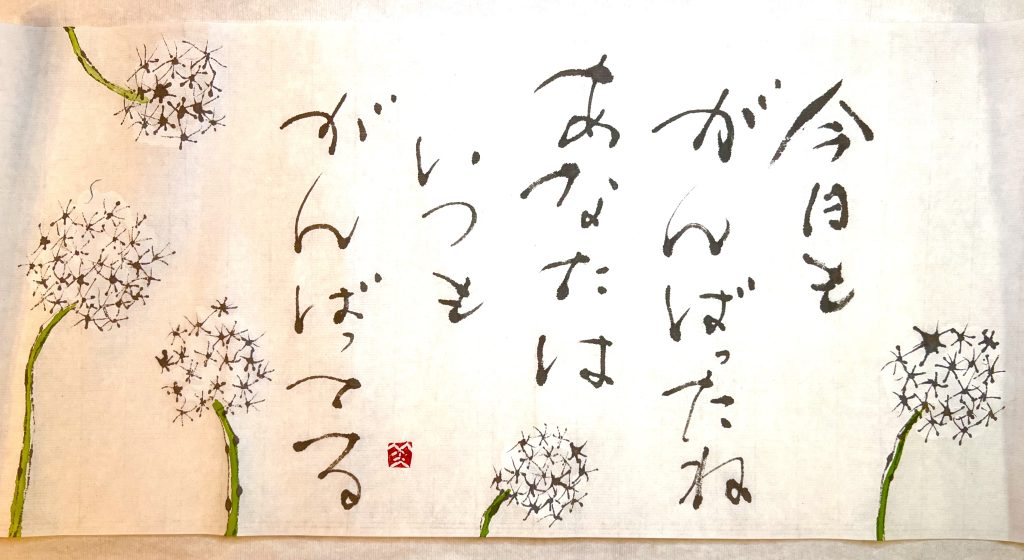 今日も
がんばったね
あなたは
いつも
がんばってる